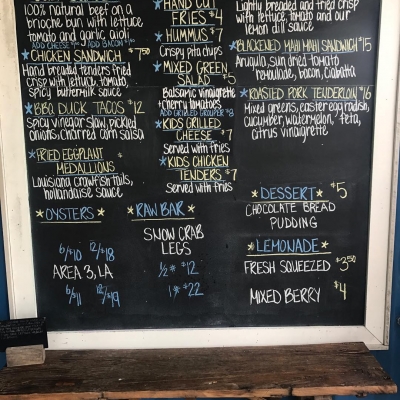 100% natural beef on a
brioche bun with lettuce
tomato and garlic aioli
ADD CHEESE ADD BACON
CHICKEN SANDWICH $7.50
Hand breaded tenders fried
crisp with lettuce, tomato,
spicy buttermilk sauce
BBQ DUCK TACOS $12
Spicy vinegar slaw, pickled
onions, charred corn salsa
FRIED EGGPLANT
MEDALLIONS
Louisiana crawfish tails,
hollandaise sauce
OYSTERS
6/$10 12/$18
AREA 3, LA
6/$11 12/$19
HAND CUT
FRIES $4
HUMMUS $7
Crispy pita chips
MIXED GREEN
SALAD $5
Balsamic vinaigrette
+ cherry tomatoes
ADD GRILLED GROUPER $8
KIDS GRILLED
CHEESE $7
Served with fries
KIDS CHICKEN
TENDERS $7
Served with fries
RAW BAR
SNOW CRAB
LEGS
1/2# $12
1# $22
Lightly breaded and fried crisp
with lettuce, tomato and our
lemon dill sauce
BLACKENED MAHI MAHI SANDWICH $15
Arugula, sun dried tomato
remoulade, bacon, ciabatta
ROASTED PORK TENDERLOIN $16
Mixed greens, easter egg radish,
cucumber, watermelon, feta,
citrus vinaigrette
DESSERT $5
CHOCOLATE BREAD
PUDDING
LEMONADE
FRESH SQUEEZED $3.50
MIXED BERRY $4